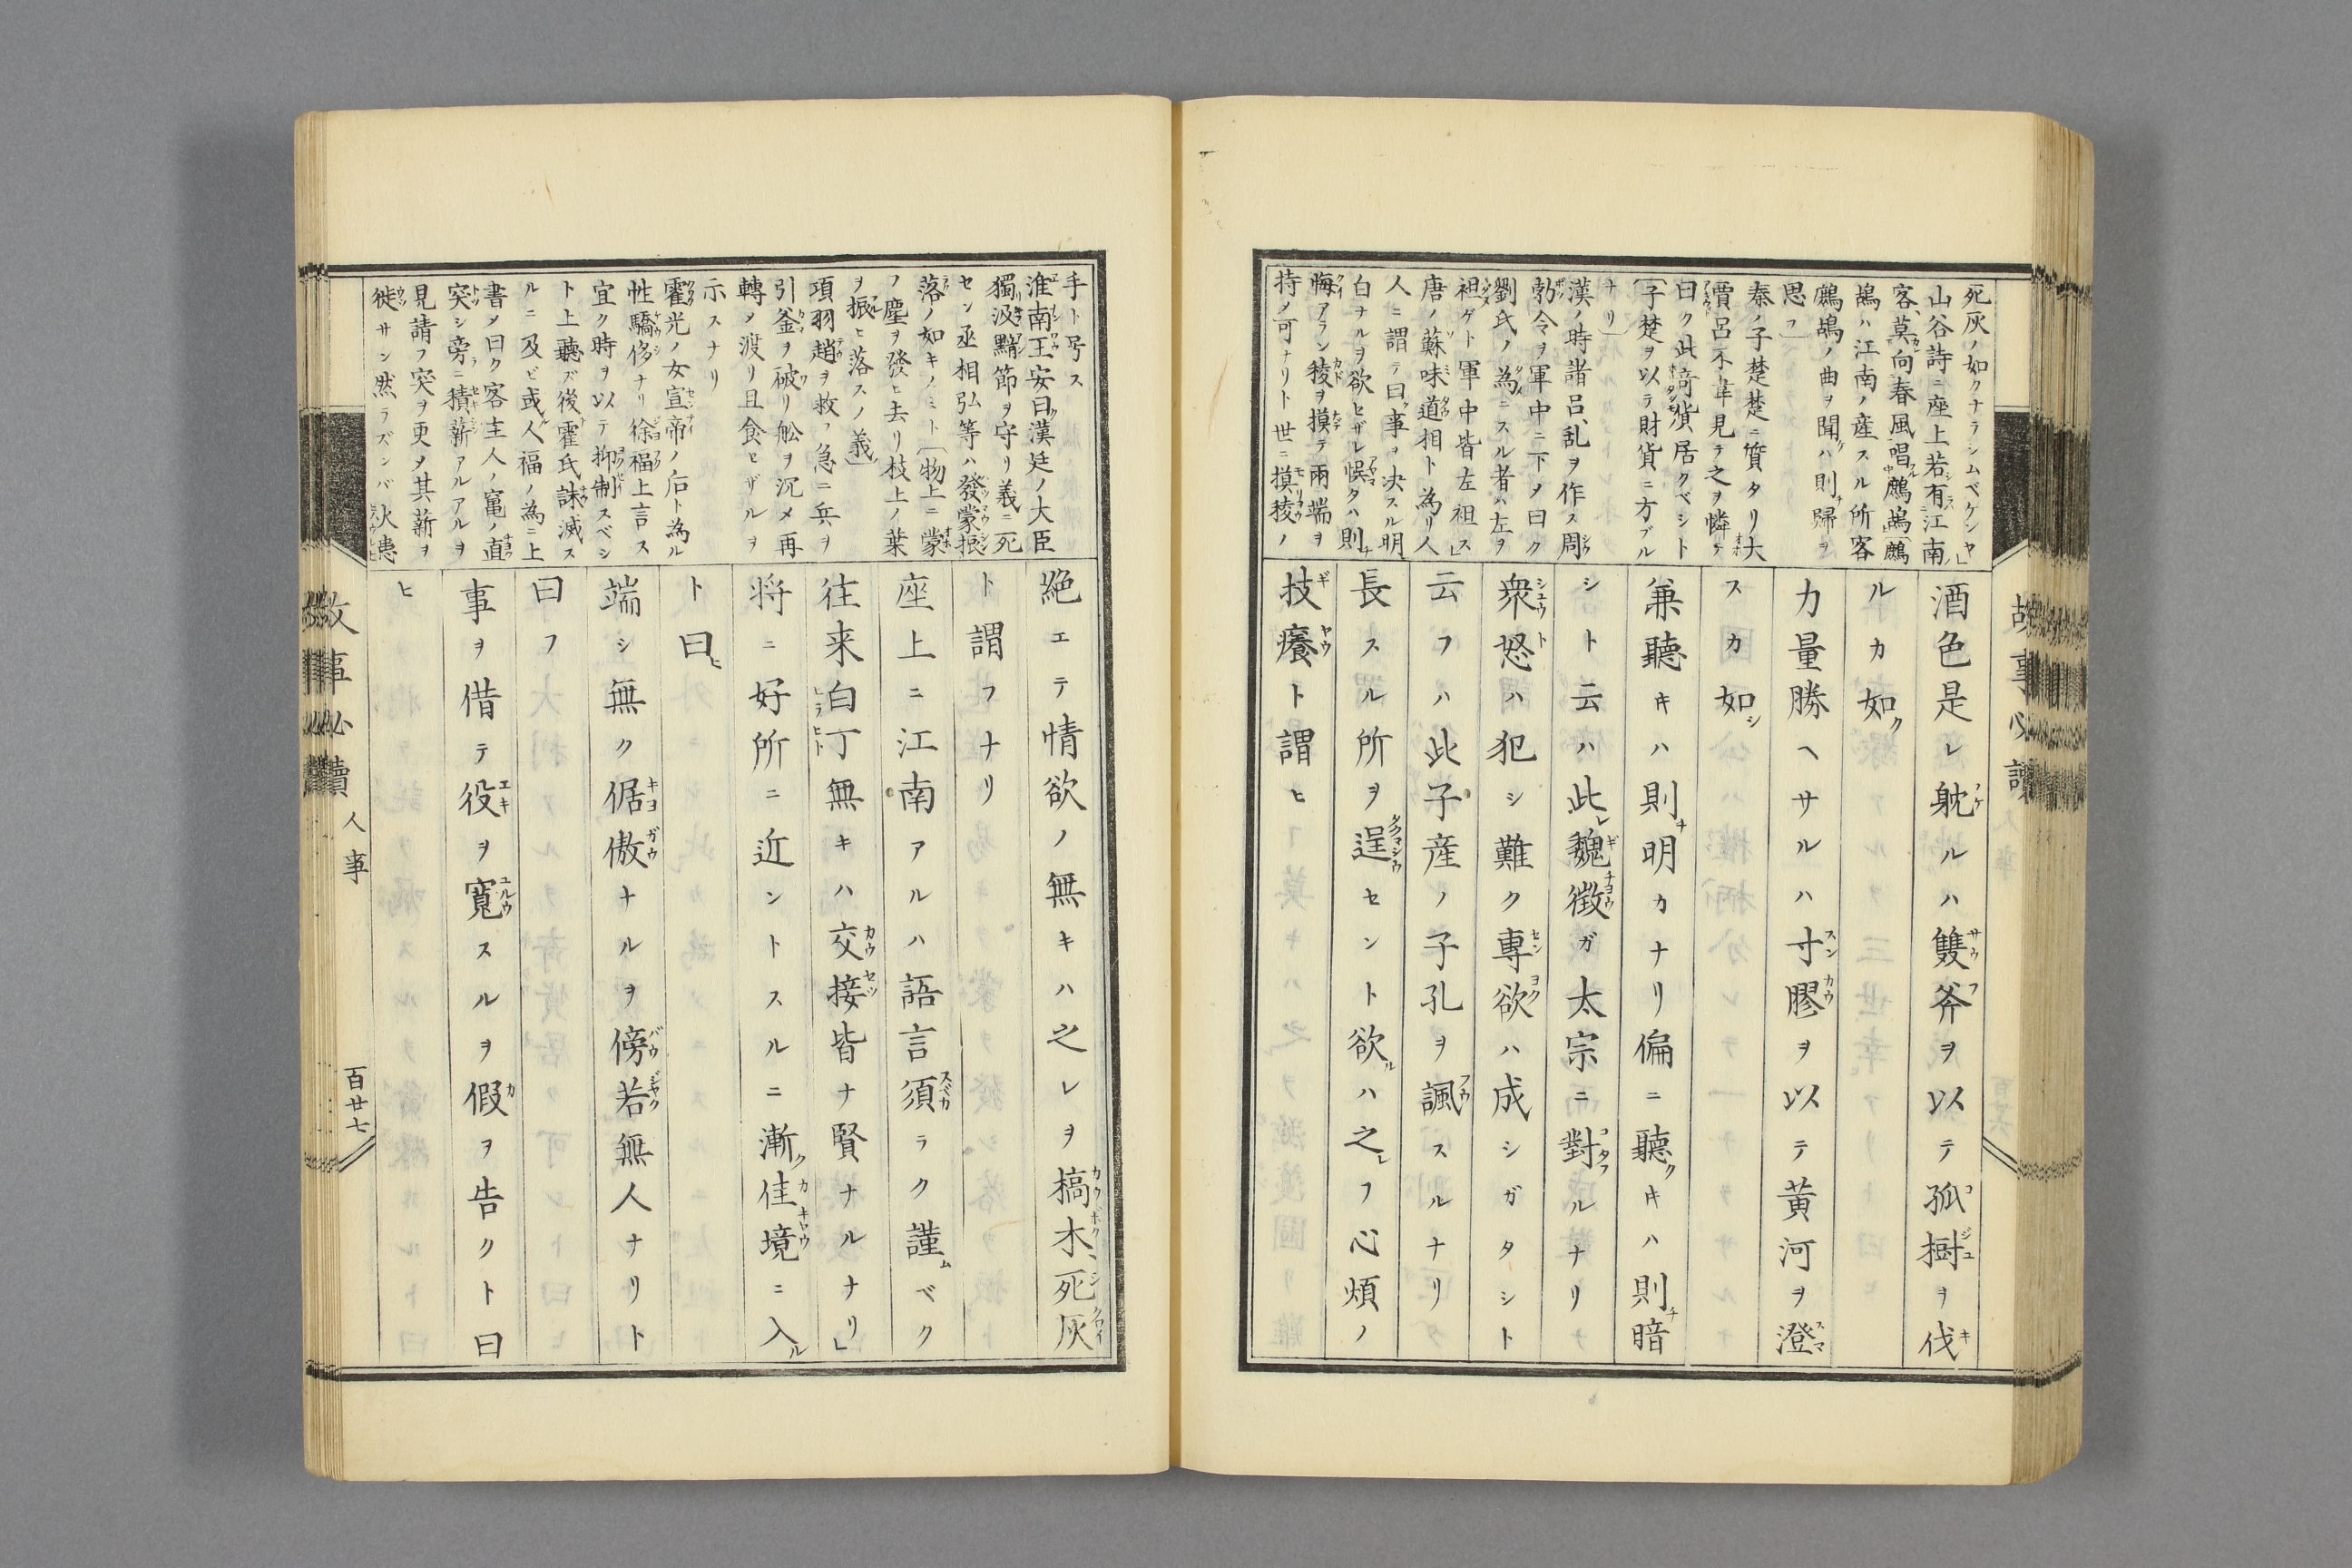 死灰ノ如クナラシムベケンヤ」
山谷詩ニ座上若有江南ノ
客、莫向春風唱鷓鴣〔鷓
鴣ハ江南ノ産スル所客
鷓鴣ノ曲ヲ聞ケハ則歸ヲ
思フ」
秦ノ子楚楚ニ質タリ大
賈呂不韋見テ之ヲ憐テ
曰ク此竒貨居クベシト
〔子楚ヲ以ラ財貨ニ方ブル
ナリ〕
漢ノ時諸呂乱ヲ作ス周
勃令ヲ軍中ニ下メ曰ク
劉氏ノ為ニスル者ハ左ヲ
袒ゲト軍中皆左袒ス」
唐ノ蘇味道相ト為リ人
人ニ謂テ曰ク事ヲ决スル明
白ナルヲ欲セザレ悞タハ則
悔アラン稜ヲ摸テ兩端ヲ
持ノ可ナリト世ニ摸稜ノ
酒色是レ躭ルハ雙斧ヲ以テ孤樹ヲ伐
ルカ如ク
力量勝ヘサルハ寸膠ヲ以テ黄河ヲ澄
スカ如シ
兼聽キハ則明カナリ偏ニ聽クキハ則暗
シト云ハ此レ魏徴ガ太宗ニ對ルナリ
衆怒ハ犯シ難ク專欲ハ成シガタシト
云フハ此子産ノ子孔ヲ諷スルナリ
長スル所ヲ逞セント欲ルハ之レフ心煩ノ
技癢ト謂ヒ
手ト号ス
淮南王安曰漢廷ノ大臣
獨汲黯節ヲ守リ義ニ死
セン丞相弘等ハ發蒙振
落ノ如キノミト〔物上ニ蒙
フ塵ヲ發ヒ去リ枝上ノ葉
ヲ振ヒ落スノ義〕
項羽趙ヲ救フ急ニ兵ヲ
引釜ヲ破リ舩ヲ沉メ再
轉メ渡リ且食ヒザルヲ
示スナリ
霍光ノ女宣帝ノ后ト為ル
性驕侈ナリ徐福上言ス
宜ク時ヲ以テ抑制スベシ
ト上聽ズ後霍氏誅滅ス
ルニ及ビ或人福ノ為ニ上
書ヲ曰ク客主人ノ竃ノ直
突シ旁ニ積薪アルアルヲ
見請フ突ヲ更メ其薪ヲ
徙サン然ラズンバ火患
絶エテ情欲ノ無キハ之レヲ槁木、死灰
ト謂フナリ
座上ニ江南アルハ語言須ラク謹ムベク
往来白丁無キハ交接皆ナ賢ナルナリ」
将ニ好所ニ近ントスルニ漸ク佳境ニ入ル
ト曰ヒ
端シ無ク倨傲ナルヲ傍若無人ナリト
曰フ
事ヲ借テ役ヲ寛スルヲ假ヲ告クト曰
ヒ
故事必讀
人事
百廿七